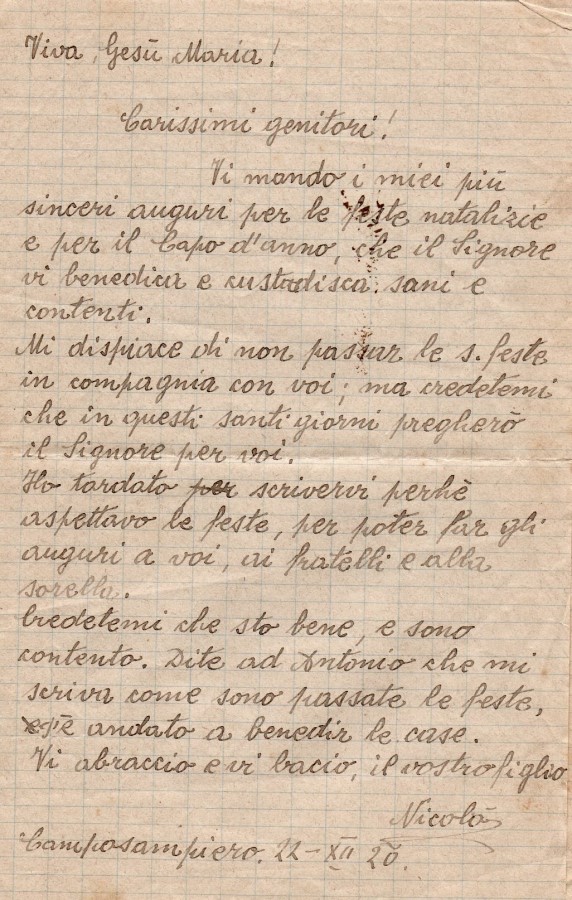 Viva Gesù Maria!
Carissimi genitori!
Vi mando i miei più
sinceri auguri per le feste natalizie
e per il Capo d'anno, che il Signore
vi benedica e custodisca sani e
contenti.
Mi dispiace di non passar le s. feste
in compagnia con voi; ma credetemi
che in questi santi giorni pregherò
il Signore per voi.
Ho tardato per scrivervi perhè
aspettavo le feste, per poter far gli
auguri a voi, ai fratelli e alla
sorella.
Credetemi che sto bene, e sono
contento. Dite ad Antonio che mi
scriva come sono passate le feste,
è andato a benedir le case.
Vi abraccio e vi bacio, il vostro figlio
Nicolò
Camposampiero. 22-XII 20.